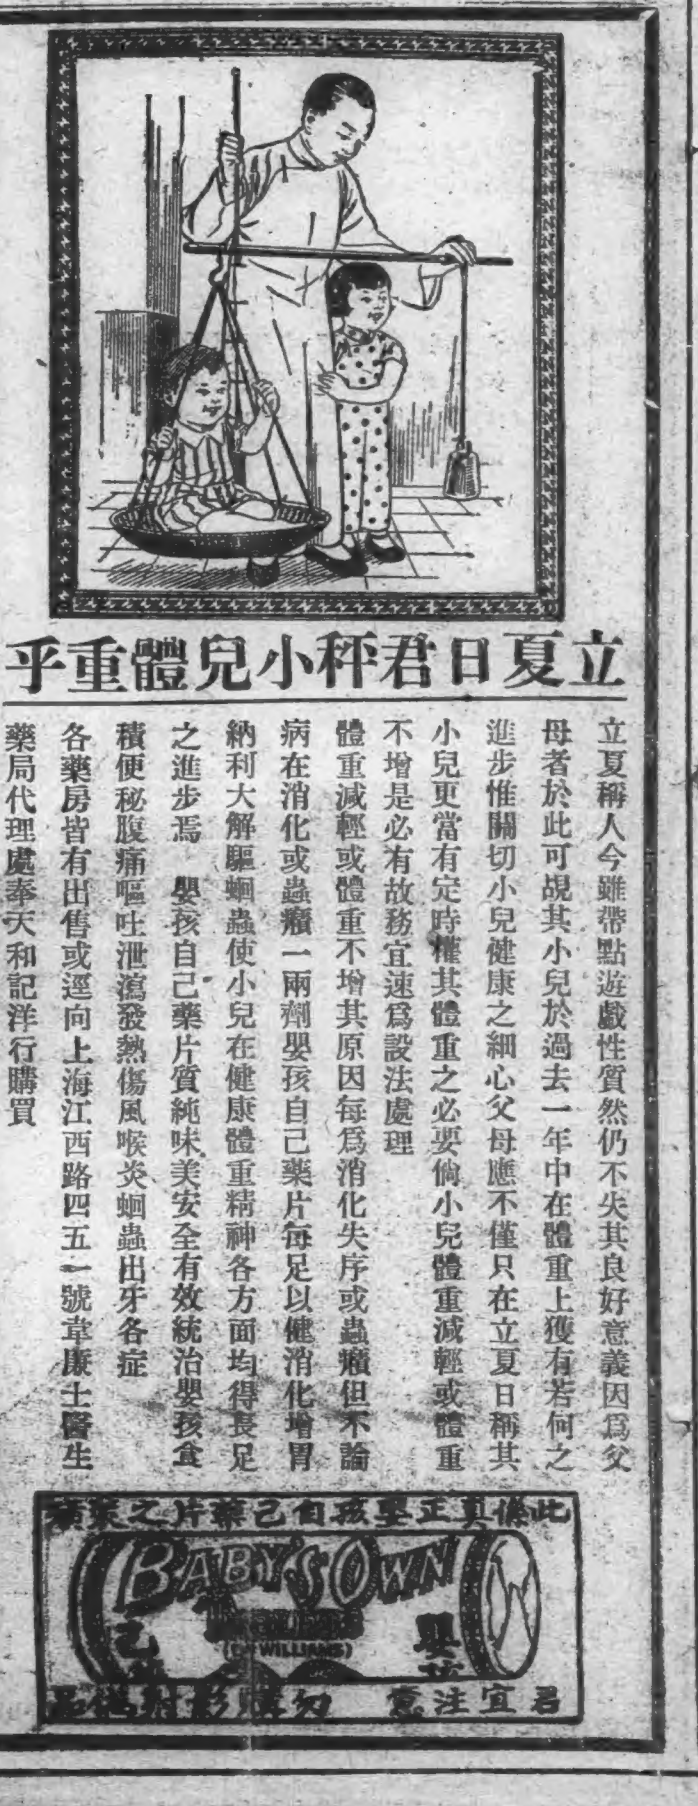 立夏日君秤小兒體重乎
立夏稱人今雖帶點遊戲性質然仍不失其良好意義因爲父
母者於此可覘其小兒於過去一年中在體重上獲有若何之
進步惟關切小兒健康之細心父母應不僅只在立夏日稱其
小兒更當有定時權其體重之必要倘小兒體重減輕或體重
不增是必有故務宜速爲設法處理
體重減輕或體重不增其原因每爲消化失序或蟲癪但不論
病在消化或蟲癪一兩劑嬰孩自己藥片每足以健消化增胃
納利大解驅蛔蟲使小兒在健康體重精神各方面均得長足
之進步焉 嬰孩自己藥片質純味美安全有效統治嬰孩食
積便秘腹痛嘔吐泄瀉發熱傷風喉炎蛔蟲出牙各症
各藥房皆有出售或逕向上海江西路四五一號韋廉士醫生
藥局代理處奉天和記洋行購買
此係真正嬰孩自己藥片之
BABY'S OWN
(DR WILLIAMS)
嬰
己
君宜注意 勿購影射僞品